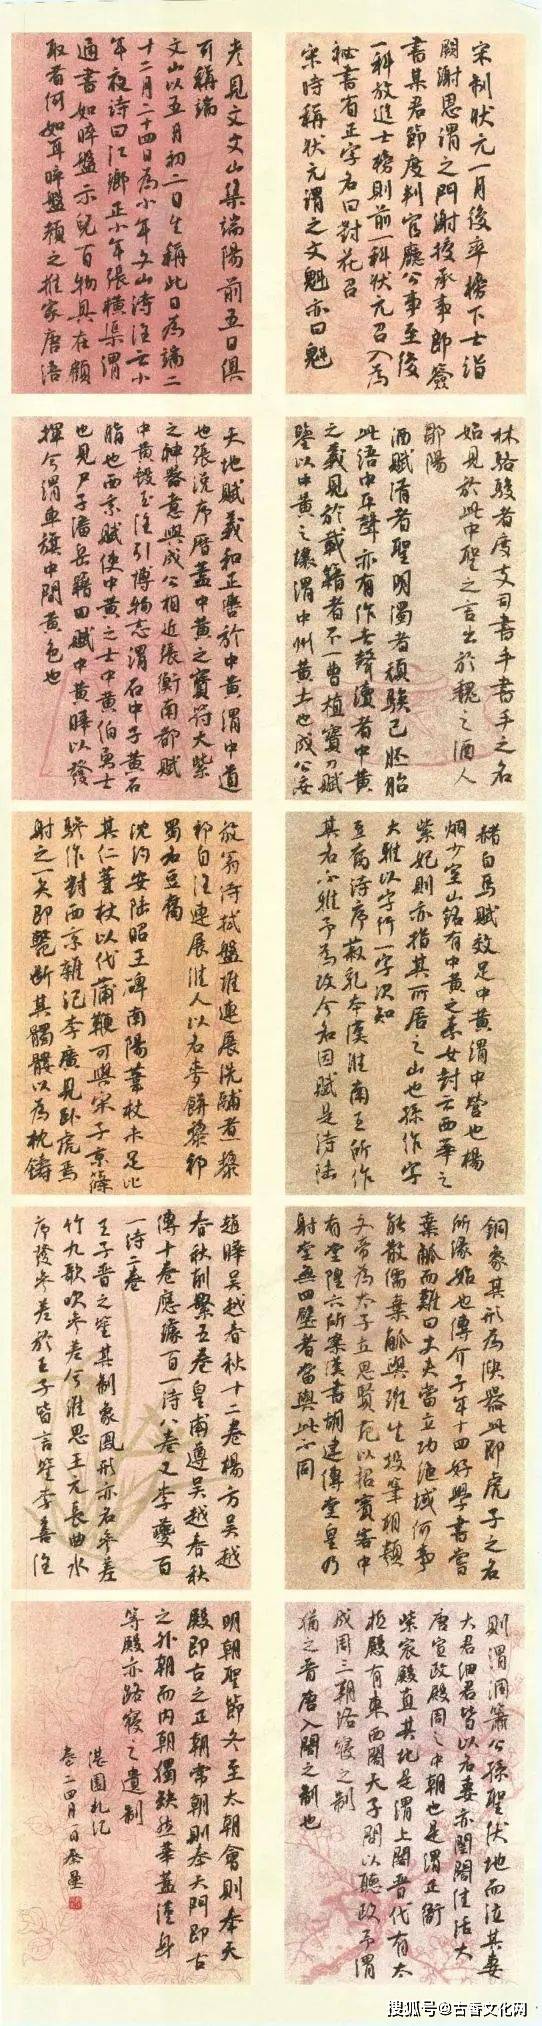 宋制狀元一月後率榜下士詣
闕謝恩謂之門謝授承事郎簽
書某君節度判官廳公事至後
一科放進士榜則前一科狀元召入為
祕書省正字名曰對花召
宋時稱狀元謂之文魁亦曰魁
老見文文山集端陽前五日俱
可稱端
文山以五月初二日生稱此日為端二
十二月二十四日為小年文山詩注云小
年夜詩曰江鄉正小年張橫渠謂
通書如晬盤示兒百物具在顧
取者何如耳晬盤類之推家唐語
林駱駿者度支司書手書手之名
始見於此中聖之言出於魏之酒人
鄒陽
酒賦清者聖明濁者頑騃已胚胎
此語中平聲亦有作去聲讀者中黃
之義見於載籍者不一曹植寶刀賦
鑒以中黃之壤謂中州黃土也成公綏
天地賦羲和正轡於中黃謂中道
也張說序曆蓋中黃之寶符大紫
之神器意與成公相近張衡南都賦
中黃瑴玉注引博物志謂石中子黃石
脂也西京賦使中黃之士中黃伯勇士
也見尸子潘岳籍田賦中黃曄以發
揮兮謂車旗中間黃色也
赭白馬賦效足中黃謂中營也楊
炯少室山銘有中黃之素女對云西華之
紫妃則亦指其所居之山也孫作字
大雅以字行一字次知
豆腐詩序菽乳本漢淮南王所作
其名不雅予為改今名因賦是詩陸
放翁詩拭盤堆連展洗鬴煮黎
祁自注連展淮人以名麥餅黎祁
蜀名豆腐
沈約安陸昭王碑南陽葦杖未足比
其仁葦杖以代蒲鞭可與宋子京篠
驂作對西京雜記李廣見卧虎焉
射之一矢即斃斷其髑髏以為枕鑄
銅象其形為溲器此即虎子之名
所緣始也傅介子年十四好學書嘗
棄觚而歎曰丈夫當立功絕域何事
能散儒棄觚與班生投筆相類
文帝為太子立思賢苑以招賓客中
有堂隍六所案漢書胡建傳堂皇乃
射堂無四壁者當與此不同
趙曄吳越春秋十二卷楊方吳越
春秋削繁五卷皇甫遵吳越春秋
傳十卷應璩百一詩八卷又李夔百
一詩二卷
王子晉之笙其制象鳳形亦名參差
竹九歌吹參差兮誰思王元長曲水
序發參差於王子皆言笙李善注
則謂洞簫公孫聖伏地而泣其妻
大君細君皆以名妻亦閨閣佳話大
唐宣政殿周之中朝也是謂正衙
紫宸殿直其北是謂上閤晉代有太
極殿有東西閤天子閒以聽政予謂
成周三朝路寢之制
猶之晉唐入閤之制也
明朝聖節冬至大朝會則奉天
殿即古之正朝常朝則奉天門即古
之外朝而內朝獨缺然華蓋謹身
等殿亦路寢之遺制
湛園札記
搜狐号@古香文化网